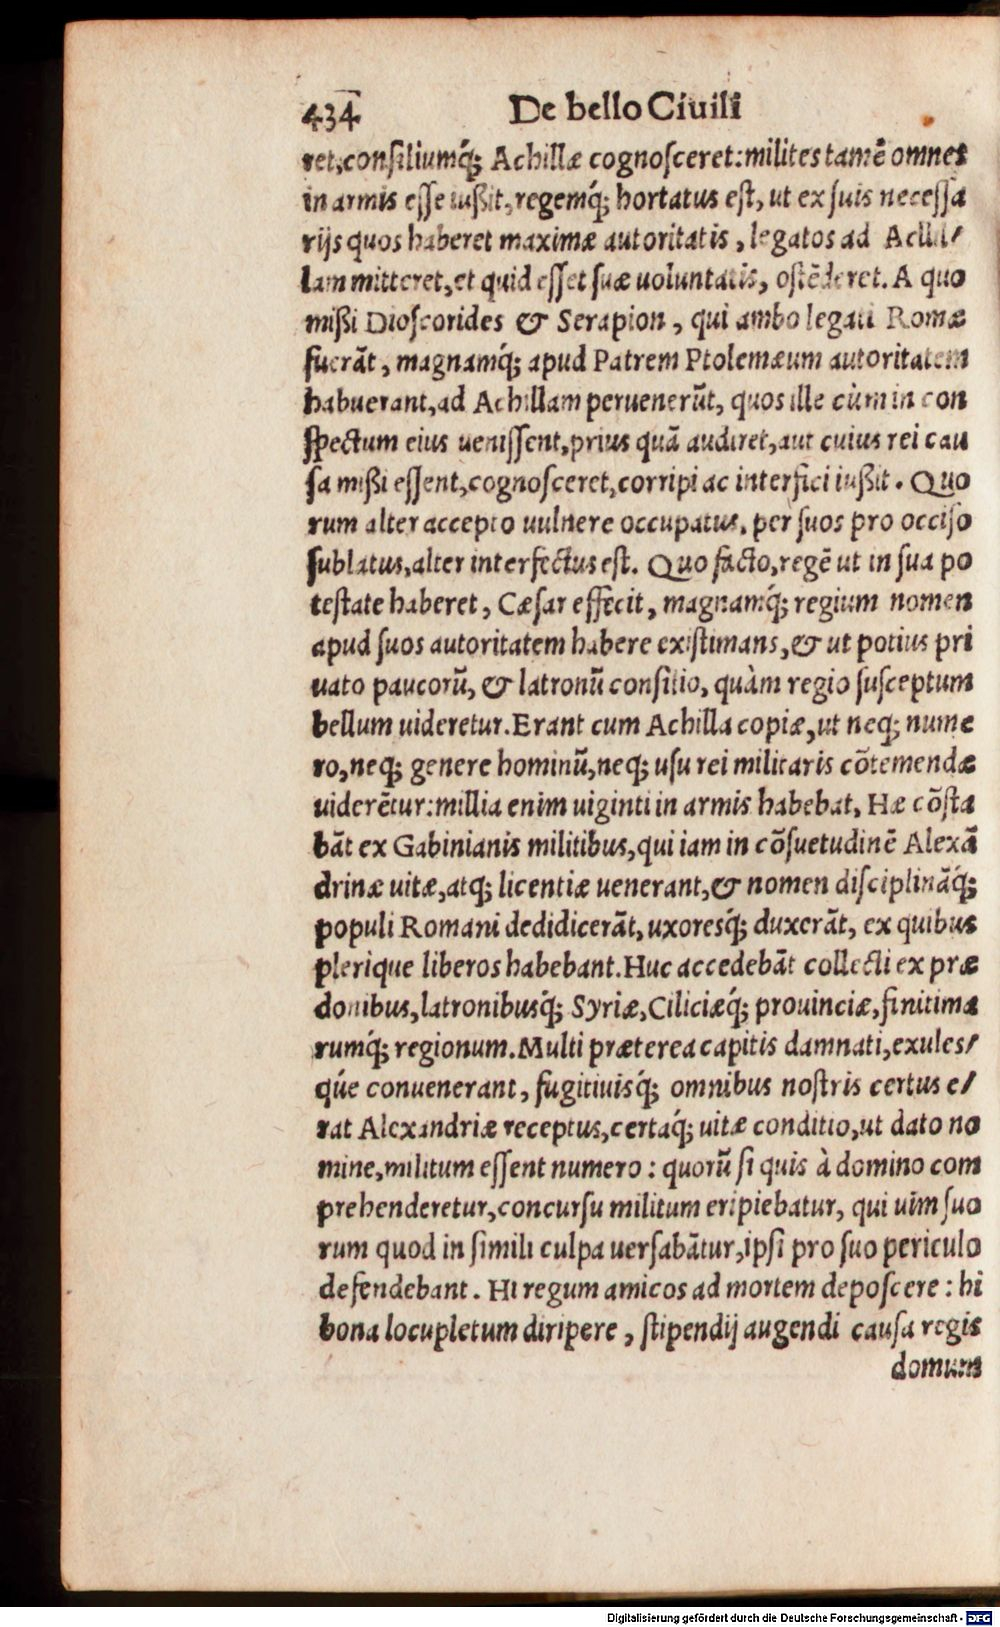 434 De bello Ciuili
ret, consiliumq́; Achillæ cognosceret: milites tamē omnes
in armis esse iußit, regemq́; hortatus est, ut ex suis necessa
rijs quos haberet maximæ autoritatis, legatos ad Achil/
lam mitteret, et quid esset suæ uoluntatis, ostēderet. A quo
mißi Dioscorides & Serapion, qui ambo legati Romæ
fuerāt, magnamq́; apud Patrem Ptolemæum autoritatem
habuerant, ad Achillam peruenerūt, quos ille cùm in con
spectum eius uenissent, prius quā audiret, aut cuius rei cau
sa mißi essent, cognosceret, corripi ac interfici iußit. Quo
rum alter accepto uulnere occupatus, per suos pro occiso
sublatus, alter interfectus est. Quo facto, regē ut in sua po
testate haberet, Cæsar effecit, magnamq́; regium nomen
apud suos autoritatem habere existimans, & ut potius pri
uato paucorū, & latronū consilio, quàm regio susceptum
bellum uideretur. Erant cum Achilla copiæ, ut neq; nume
ro, neq; genere hominū, neq; usu rei militaris cōtemendæ
uiderētur: millia enim uiginti in armis habebat, Hæ cōsta
bāt ex Gabinianis militibus, qui iam in cōsuetudinē Alexā
drinæ uitæ, atq; licentiæ uenerant, & nomen disciplināq́;
populi Romani dedidicerāt, uxoresq́; duxerāt, ex quibus
plerique liberos habebant. Huc accedebāt collecti ex præ
donibus, latronibusq́; Syriæ, Ciliciæq́; prouinciæ, finitima
rumq́; regionum. Multi præterea capitis damnati, exules/
qúe conuenerant, fugitiuisq́; omnibus nostris certus e/
rat Alexandriæ receptus, certaq́; uitæ conditio, ut dato no
mine, militum essent numero: quorū si quis à domino com
prehenderetur, concursu militum eripiebatur, qui uim suo
rum quod in simili culpa uersabātur, ipsi pro suo periculo
defendebant. Hi regum amicos ad mortem deposcere: hi
bona locupletum diripere, stipendij augendi causa regis
domum
Digitalisierung gefördert durch die Deutsche Forschungsgemeinschaft - DFG